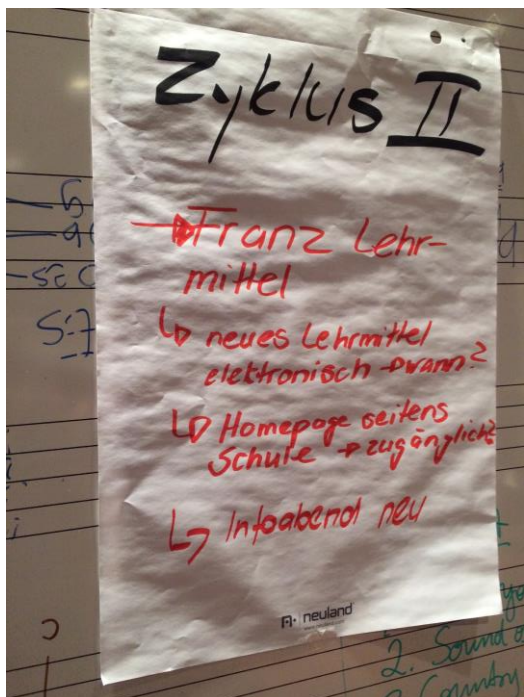 Zyklus II
→ Franz Lehr-
mittel
↳ neues Lehrmittel
elektronisch → wann?
↳ Homepage seitens
Schule → zugänglich?
↳ Infoabend neu
neuland
2. Sound o
Country